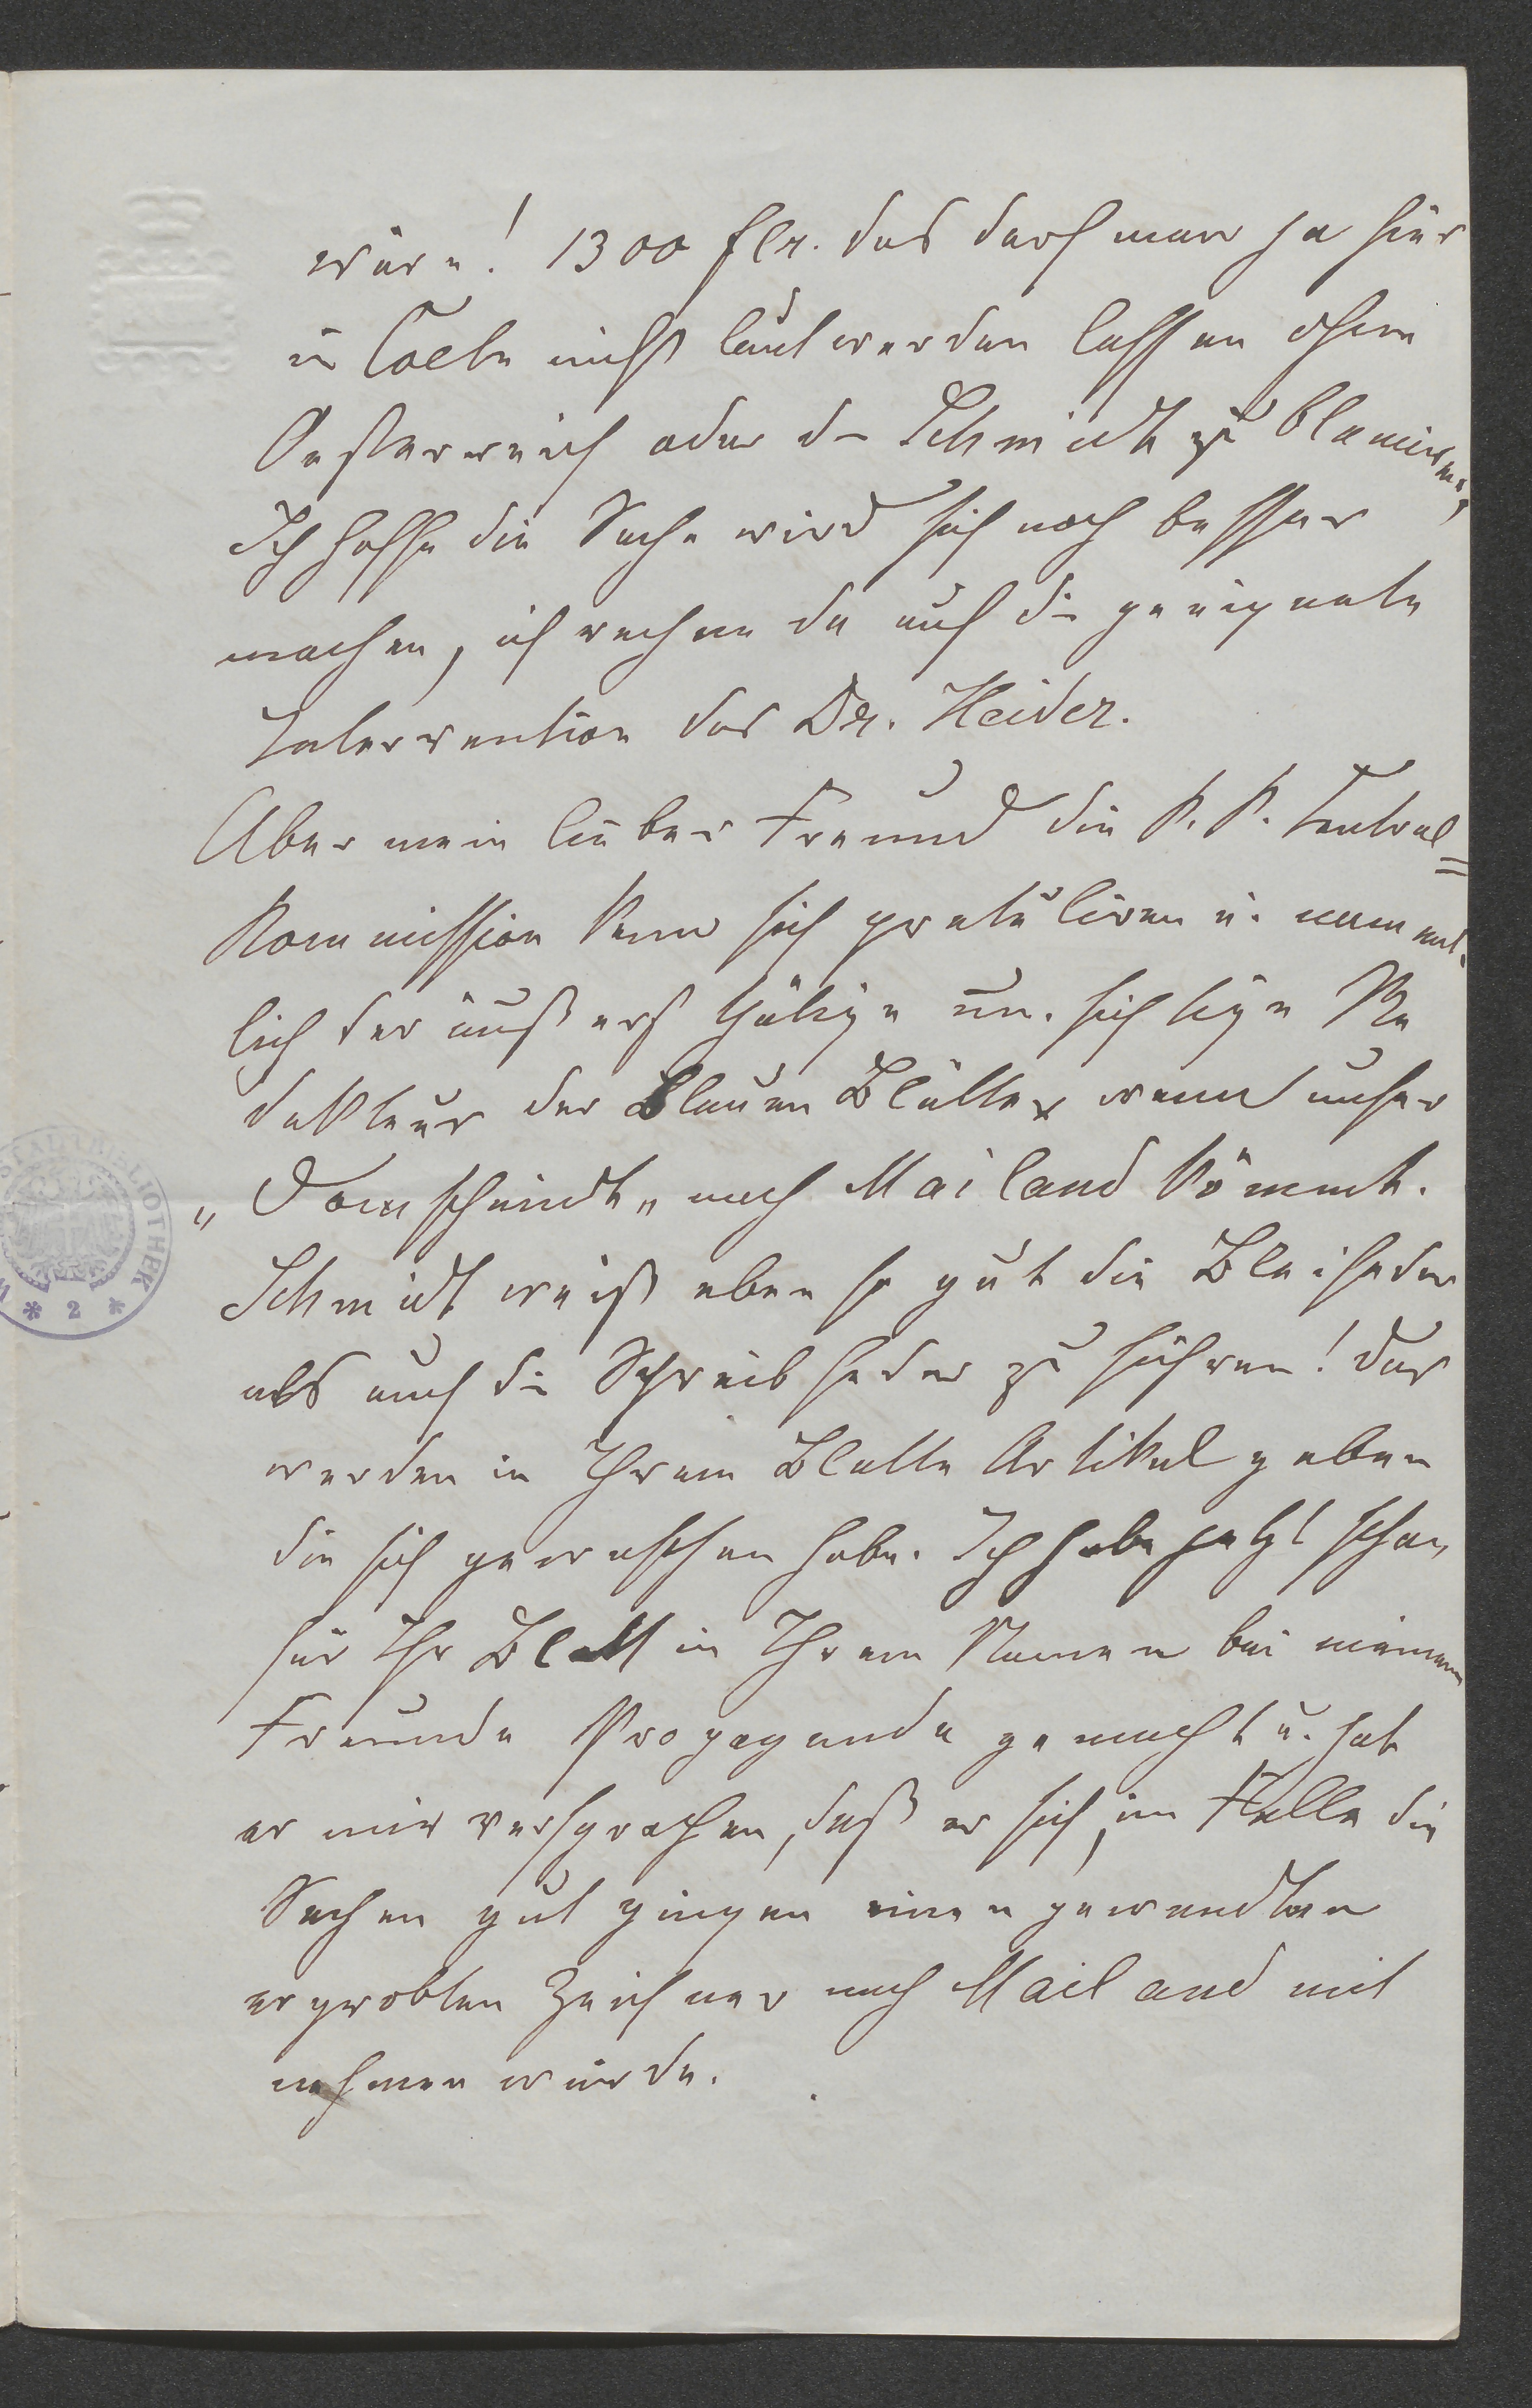 wäre! 1300 flr. das darf man ja hier
in Coeln nicht laut werden lassen ohne
Oesterreich oder d– Schmidt zu blamiren,
Ich hoffe die Sache wird sich noch besser
machen, ich rechne da auf die geeignete
Intervention des Dr. Heider.
Aber mein lieber Freund die K. K. Central=
Kommission kann sich gratuliren u. nament
lich der äußerst thätige um. sichtige Re
dakteur der Blauen Blätter wenn unser
„Domschmidt„ nach Mailand kömmt.
Schmidt weiß eben so gut die Bleifeder
als auch die Schreibfeder zu führen! Das
werden in Ihrem Blatte Artikel geben
die sich gewaschen habe. Ich habe jetzt schon
für Ihr Blatt in Ihrem Namen bei meinem
Freunde Propaganda gemacht u. hat
er mir versprochen, daß er sich, im Falle die
Sachen gut gingen einen gewandten
erprobten Zeichner nach Mailand mit
nehmen würde.
STADTBIBLIOTHEK
* 2 *